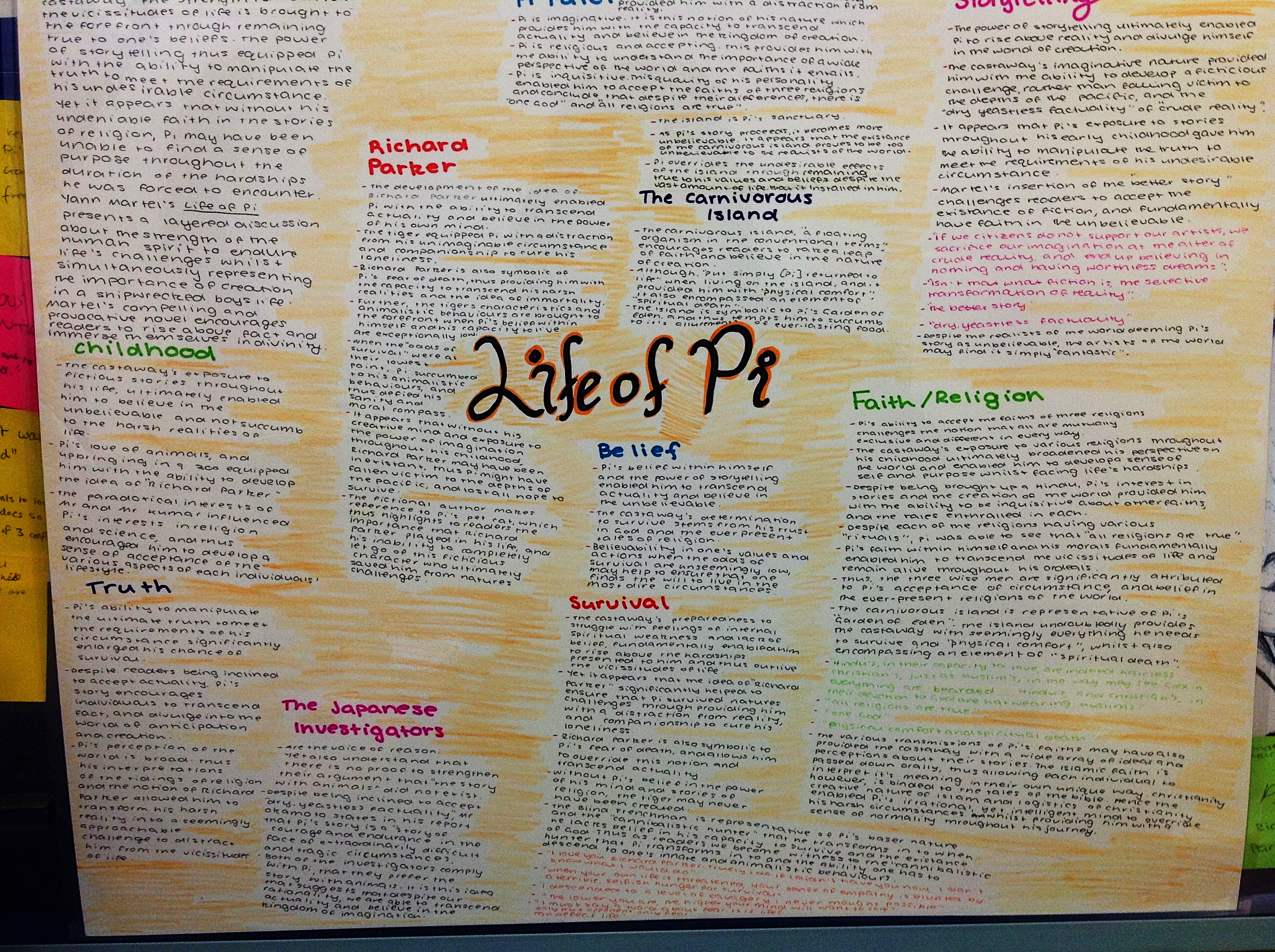 the vicissitudes of life is brought to
the forefront through remaining
true to one's beliefs. The power
of storytelling thus equipped Pi
with the ability to manipulate the
truth to meet the requirements of
his undesirable circumstance.
Yet it appears that without his
undeniable faith in the stories
of religion, Pi may have been
unable to find a sense of
purpose throughout the
duration of the hardships
he was forced to encounter.
Yann Martel's Life of Pi
presents a layered discussion
about the strength of the
human spirit to endure
life's challenges whilst
simultaneously representing
the importance of creation
in a shipwrecked boys life.
Martel's compelling and
provocative novel encourages
readers to rise above fact and
immerse themselves in divinity
Childhood
- The castaway's exposure to
fictious stories throughout
his life, ultimately enabled
him to believe in the
unbelievable and not succumb
to the harsh realities of
life.
- Pi's love of animals, and
upbringing in a zoo equipped
him with the ability to develop
the idea of "Richard Parker"
- The paradoxical interests of
Mr and Mr Kumar influenced
Pi's interests in religion
and science, and thus
encouraged him to develop a
sense of acceptance of the
various aspects of each individuals'
lifestyle.
Truth
- Pi's ability to manipulate
the ultimate truth to meet
the requirements of his
circumstance significantly
enlarged his chance of
survival.
- Despite readers being inclined
to accept actuality, Pi's
story encourages
individuals to transcend
fact, and divulge into the
world of anticipation
and creation.
- Pi's perception of the
world is broad. Thus
his interpretations
of the tidings of religion
and the notion of Richard
Parker allowed him to
transform his harsh
reality into a seemingly
approachable
challenge to distract
him from the vicissitudes
of life
provided him with a distraction from
reality.
- Pi is imaginative. It is this notion of his nature which
provides him with the capacity to transcend
actuality and believe in the kingdom of creation.
- Pi is religious and accepting. This provides him with
the ability to understand the importance of a wide
perspective of the world and the faiths it entails.
- Pi is inquisitive. This quality of his personality
enabled him to accept the faiths of three religions
and conclude, that despite their differences, there is
"one God" and "all religions are true".
Richard
Parker
- The development of the idea of
Richard Parker ultimately enabled
Pi with the ability to transcend
actuality and believe in the power
of his own mind.
- The tiger equipped Pi with a distraction
from his unimaginable circumstance
and companionship to cure his
loneliness.
- Richard Parker is also symbolic of
Pi's fear of death, thus providing him with
the capacity to transcend his harsh
realities and the idea of immortality.
- Further, the tiger's characteristics and
animalistic behaviours are brought to
the forefront when Pi's belief within
himself and his capacity to live
are exceptionally low.
- When the "odds of
survival" were at
their lowest
point, Pi succumbed
to his animalistic
behaviours, and
thus defied his
sanity and
moral compass.
- It appears that without his
creative mind and exposure to
the power of imagination
throughout his childhood,
Richard Parker may have been
inexistant, thus Pi might have
fallen victim to the depths of
the pacific, and lost all hope to
survive.
- The fictional author makes
reference to Pi's pet cat, which
thus highlights to readers the
importance that Richard
Parker played in his life, and
his inability to completely
let go of this ficticious
character who ultimately
saved him from natures
challenges.
The Japanese
Investigators
- are the voice of reason.
- Yet also understand that
there is no proof to strengthen
their argument that "the story
with animals" did not exist
- Despite being inclined to accept
"dry, yeastless factuality", Mr
Okamoto states in his report
that Pi's story is a "story of
courage and endurance in the
face of extraordinarily difficult
and tragic circumstances".
- Both of the investigators comply
with Pi, that they prefer the
story with animals. It is this idea
that suggests that despite our
rationality, we are able to transcend
actuality and believe in the
kingdom of imagination.
- The island is Pi's sanctuary.
- As Pi's story proceeds, it becomes more
unbelievable. It appears that the existance
of the carnivorous island proves to be too
unbelievable to the realists of the world.
- Pi overrides the undesirable effects
of the island through remaining
true to his values and beliefs despite the
vast amount of life that it installed in him.
The carnivorous
Island
- The carnivorous island, "a floating
organism in the conventional terms"
encourages readers to take a leap
of faith and believe in the nature
of creation.
- Although, "put simply [Pi] returned to
life" when living on the island, and it
provided him with "physical comfort"
it also encompassed an element of
"spiritual death".
- The island is symbolic to Pi's Garden of
Eden, and thus tempts him to succumb
to its allurements of everlasting food.
Life of Pi
Belief
- Pi's belief within himself
and the power of storytelling
enabled him to transcend
actuality and believe in
the unbelievable
- The castaway's determination
to survive stems from his trust
in God and the ever present
tales of religion.
- Believability in one's values and
actions when the odds of
survival are unseemingly low,
may help to ensure that one
finds the will to live in the
most dire circumstances
Survival
- The castaway's preparedness to
struggle with feelings of internal
spiritual weakness and lack of
belief, fundamentally enabled him
to rise above the hardships
presented to him and thus outlive
the vicissitudes of life.
- Yet it appears that the idea of "Richard
Parker" significantly helped to
ensure that Pi survived natures
challenges through providing him
with a distraction from reality,
and companionship to cure his
loneliness.
- Richard Parker is also symbolic to
Pi's fear of death, and allows him
to override this notion and
transcend actuality.
- Without Pi's belief in the power
of his mind and stories of
religion, the tiger may never
have been created.
- The blind Frenchman is representative of Pi's baser nature
and the "cannibalistic hunter" that he transforms in to when
he lacks belief in his capacity to survive and the existance
of God. Thus as readers we become witness to the "cannibalistic
hunter" that Pi transforms in to and the ability one has to
descend to one's innate and animalistic behaviours.
Storytelling
- The power of storytelling ultimately enabled
Pi to rise above reality and divulge himself
in the world of creation.
- The castaway's imaginative nature provided
him with the ability to develop a ficticious
challenge, rather than falling victim to
the depths of the pacific, and the
"dry yeastless factuality" of "crude reality".
- It appears that Pi's exposure to stories
throughout his early childhood gave him
the ability to manipulate the truth to
meet the requirements of his undesirable
circumstance.
- Martel's insertion of the "better story"
challenges readers to accept the
existence of fiction, and fundamentally
have faith in the unbelievable.
- "If we citizens do not support our artists, we
sacrifice our imagination at the alter of
crude reality, and end up believing in
nothing and having worthless dreams".
- "Isn't that what fiction is, the selective
transformation of reality"
- "the better story"
- "dry, yeastless factuality"
- Despite the realists of the world deeming Pi's
story as unbelievable, the artists of the world
may find it simply "fantastic".
Faith/Religion
- Pi's ability to accept the faiths of three religions
challenges the notion that all are mutually
exclusive and different in every way.
- The castaway's exposure to various religions throughout
his childhood ultimately broadened his perspective on
the world and enabled him to develop a sense of
self and purpose whilst facing life's hardships.
- Despite being brought up a Hindu, Pi's interest in
stories and the creation of the world provided him
with the ability to be inquisitive about other faiths,
and the tales entwined in each.
- Despite each of the religions having various
"rituals", Pi was able to see that "all religions are true".
- Pi's faith within himself and his morals fundamentally
enabled him to transcend the vicissitudes of life and
remain alive throughout his ordeals.
- Thus, the three wise men are significantly attributed
to Pi's acceptance of circumstance, and belief in
the ever-present religions of the world.
- The carnivorous island is representative of Pi's
"Garden of Eden". The island undoubtedly provides
the castaway with seemingly everything he needs
to survive and "physical comfort", whilst also
encompassing an element of "spiritual death".
- "all religions are true"
- "one God"
- "physical comfort and spiritual death"
- The various transmissions of Pi's faiths may have also
provided the castaway with a wide array of ideas and
perceptions about their stories. The Islamic faith is
passed down orally, thus allowing each individual to
interpret it's meaning in their own unique way. Christianity
however, is bounded to the tales of the bible. Hence the
creative nature of Islam and logistics of christianity
enabled Pi's irrational, yet intelligent mind to override
his harsh circumstances whilst providing him with a
sense of normality throughout his journey.